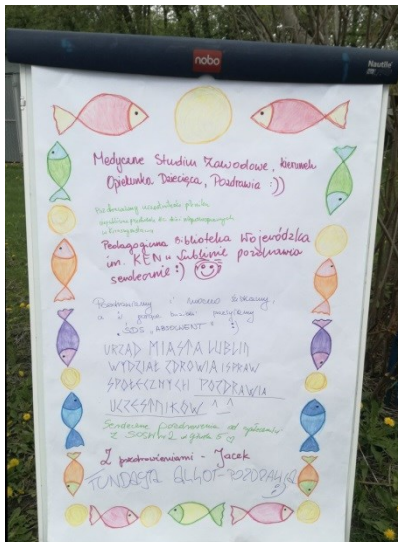 nobo
Nautile
Medyczne Studium Zawodowe, kierunek
Opiekunka Dziecięca, Pozdrawia :))
Pozdrawiamy wszystkich
Pedagogiczna Biblioteka Wojewódzka
im. KEN w Lublinie pozdrawia
serdecznie :)
Pozdrawiamy i mocno ściskamy,
ŚDS "ABSOLWENT" :)
URZĄD MIASTA LUBLIN
WYDZIAŁ ZDROWIA I SPRAW
SPOŁECZNYCH POZDRAWIA
UCZESTNIKÓW ^_^
Serdeczne pozdrowienia od
Z pozdrowieniami - Jacek
FUNDACJA POZDRAWIA